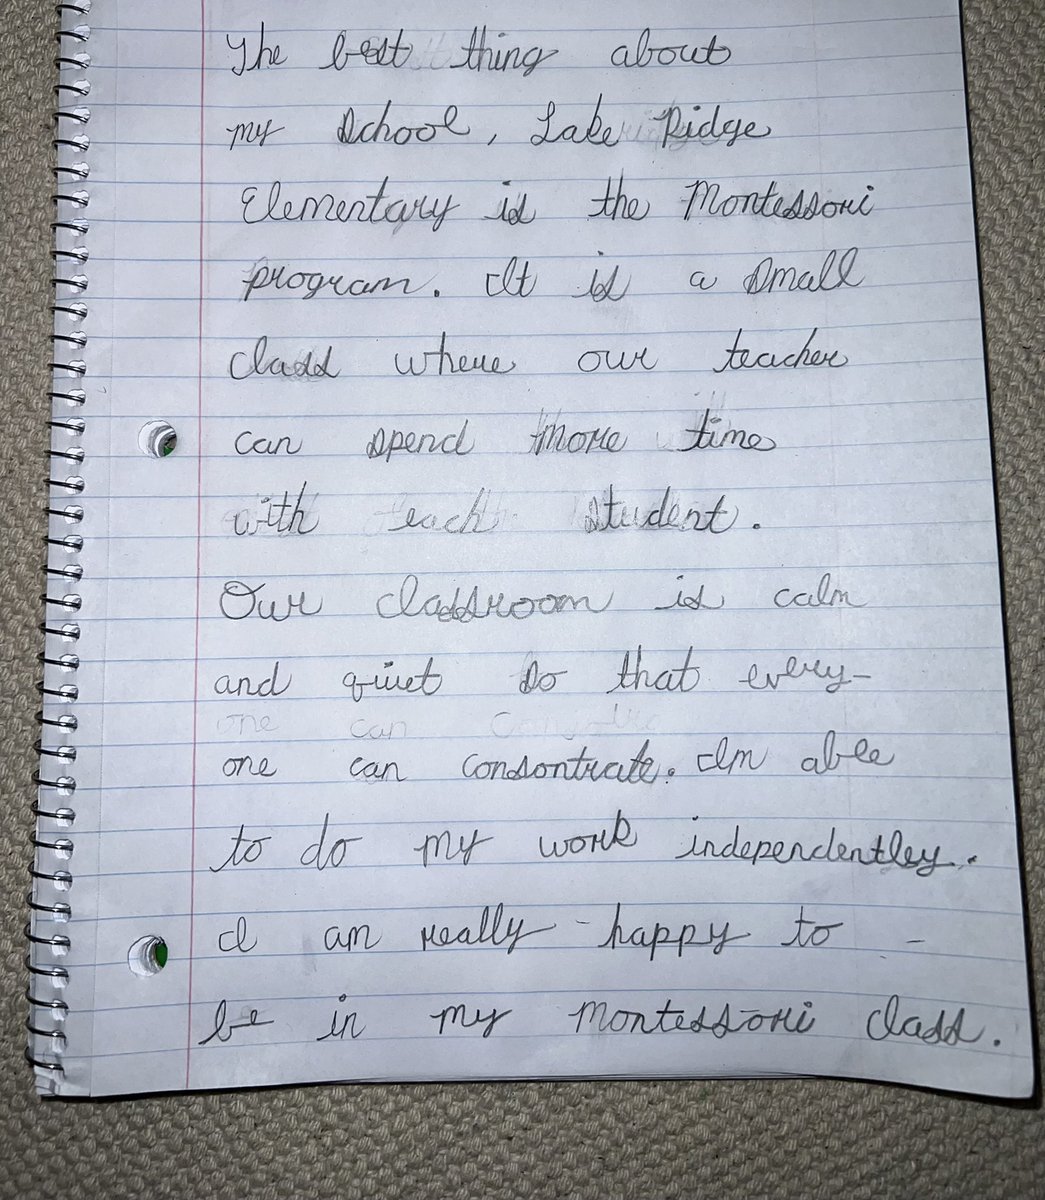 The best thing about
my school, Lake Ridge
Elementary is the Montessori
program. It is a small
class where our teacher
can spend more time
with each student.
Our classroom is calm
and quiet so that every-
one can
one can consontrate. Im able
to do my work independentley.
I am really happy to
be in my Montessori class.